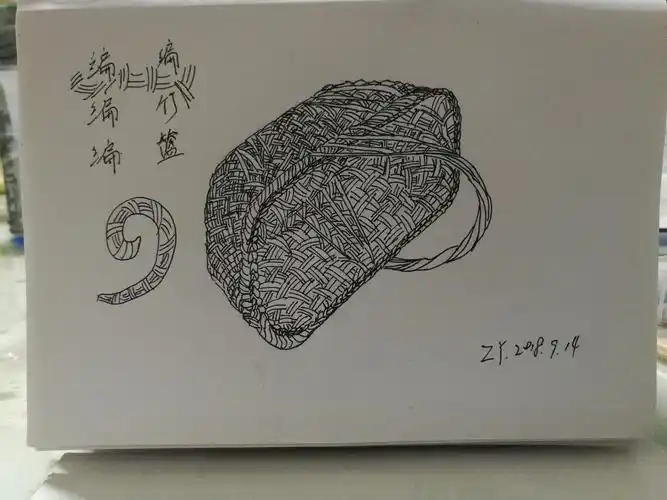 编编编
编竹篮
ZY.2018.9.14